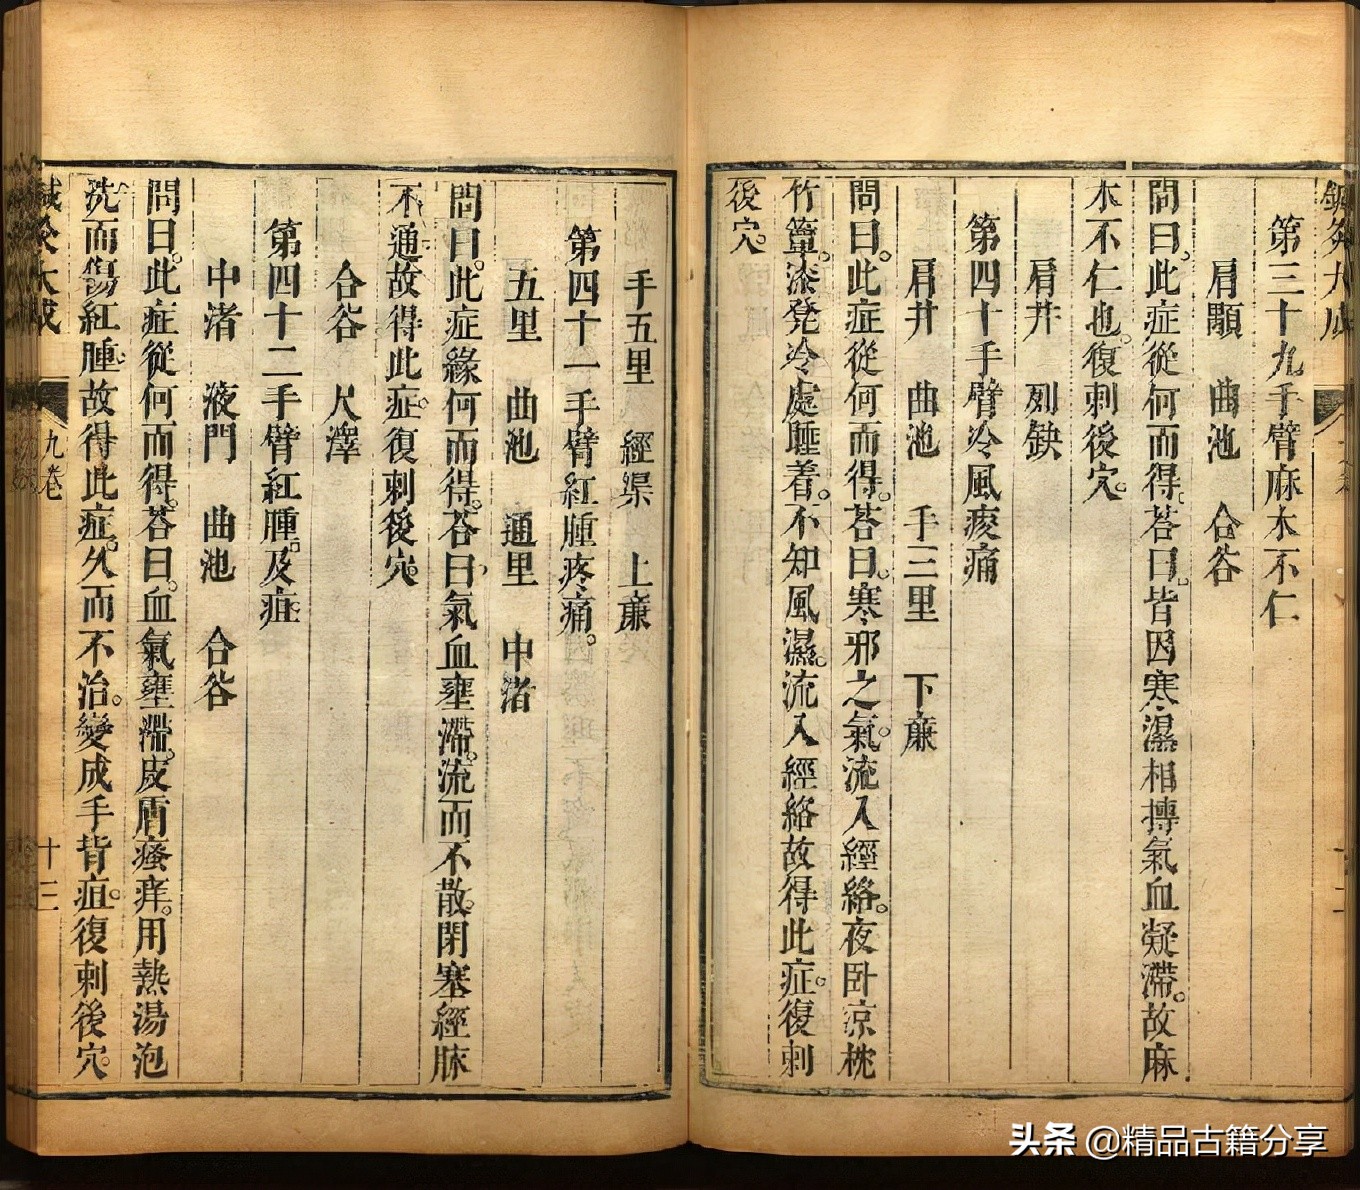 第三十九手臂麻木不仁
肩顒　曲池　合谷
問曰。此症從何而得。荅曰。皆因寒濕相摶氣血凝滯。故麻
木不仁也。復刺後穴。
肩井　列缺
第四十手臂冷風痠痛
肩井　曲池　手三里　下亷
問曰。此症從何而得。荅曰。寒邪之氣。流入經絡。夜卧涼枕
竹簟。漆凳冷處睡着。不知風濕。流入經絡故得此症。復刺
後穴。
手五里　經渠　上亷
第四十一手臂紅腫疼痛。
五里　曲池　通里　中渚
問曰。此症緣何而得。荅曰。氣血壅滯。流而不散。閉塞經脉
不通。故得此症。復刺後穴。
合谷　尺澤
第四十二手臂紅腫。及疽
中渚　液門　曲池　合谷
問曰。此症從何而得。荅曰。血氣壅滯。皮膚瘙痒。用熱湯泡
洗而傷紅腫。故得此症。久而不治。變成手背疽。復刺後穴。
鍼灸大成　九卷　十三
頭条 @精品古籍分享